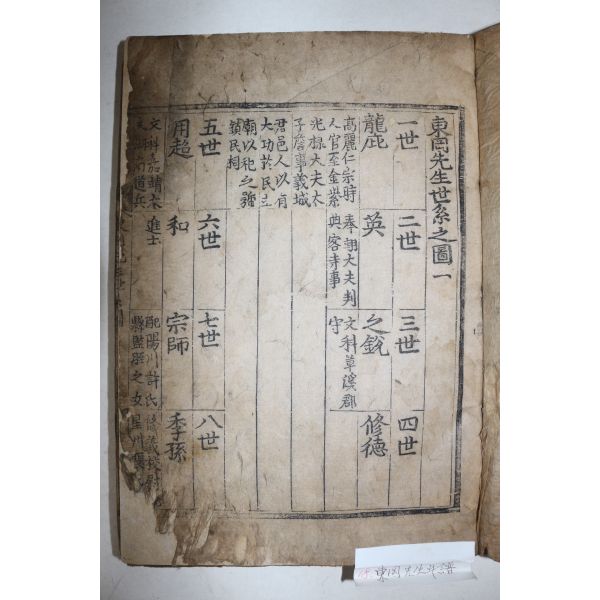 東岡先生世系之圖一
一世
二世
三世
四世
龍庇
英
之銳
修德
高麗仁宗時
人官至金紫
光祿大夫太
子詹事義城
君邑人以有
大功於民立
廟以祀之號
鎮民祠
奉翊大夫判
典客寺事
文科草溪郡
守
五世
六世
七世
八世
用超
和
宗師
季孫
文科嘉靖大
道兵
進士
配陽川許氏
縣監
之女星州